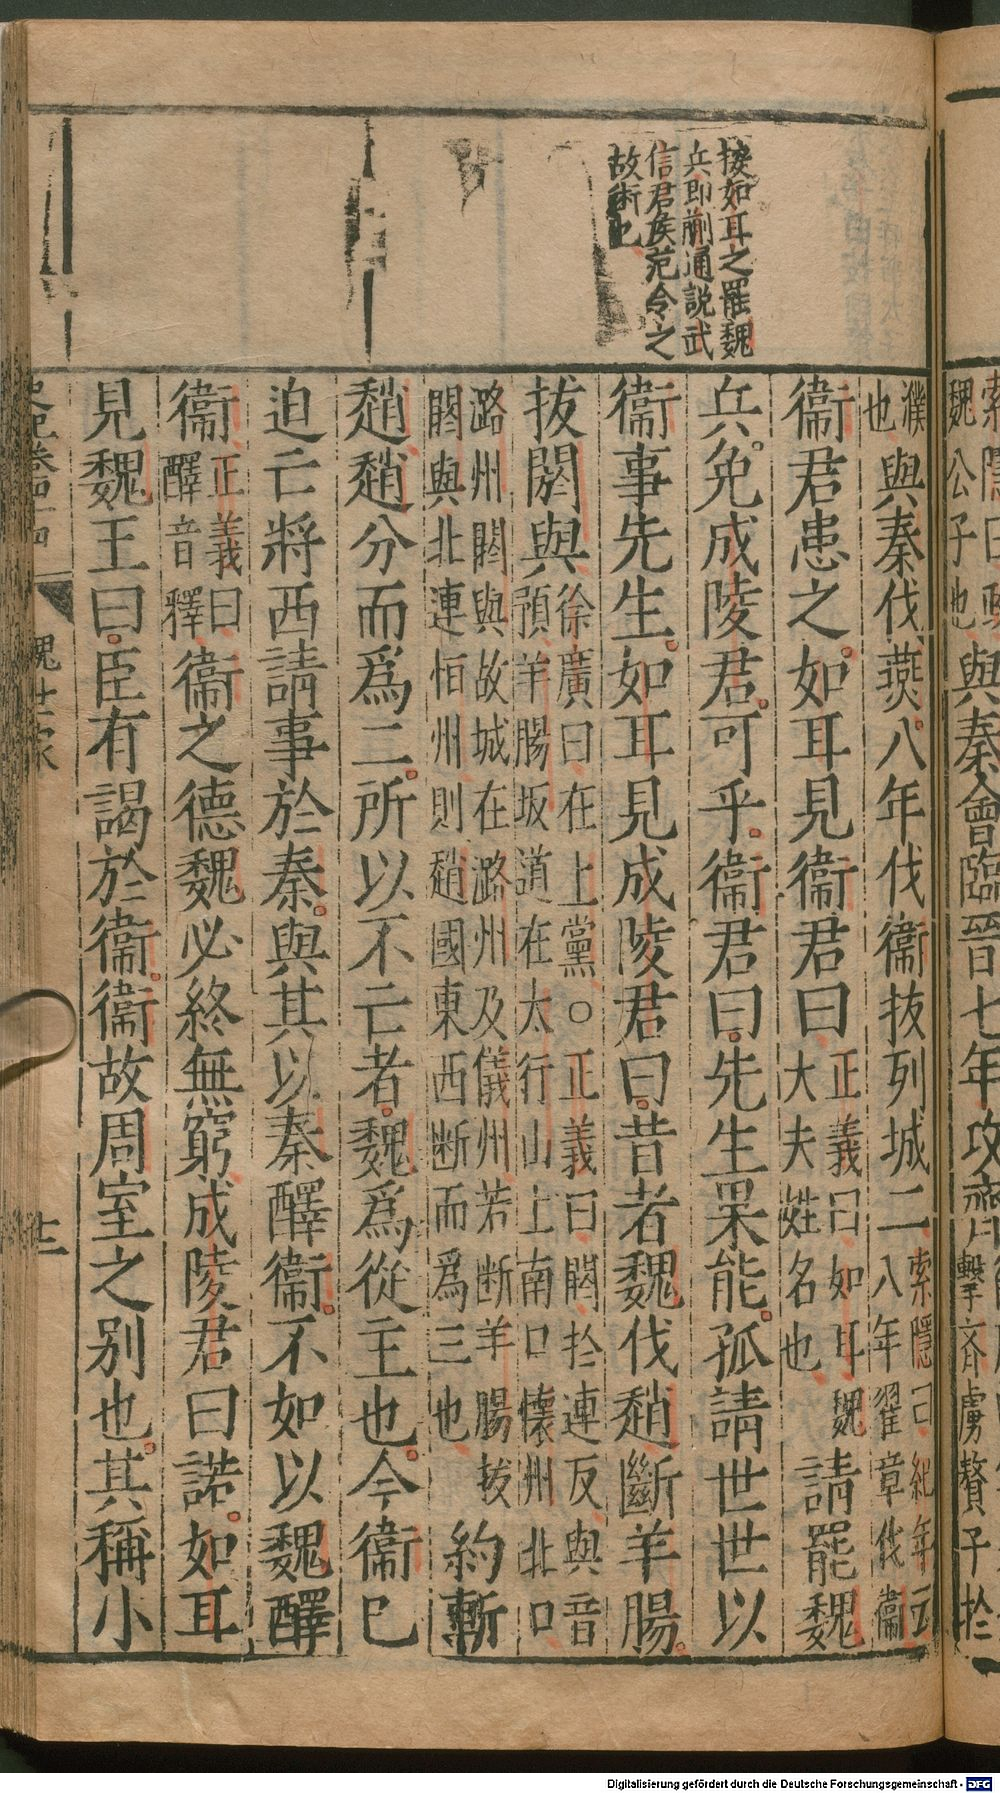 按如耳之罷魏
兵即蒯通説武
信君侯范令之
故術也
魏公子也與秦會臨晉七年攻齊
濮
也與秦伐燕八年伐衞拔列城二索隱曰紀年云
八年翟章伐衞
衞君患之如耳見衞君曰正義曰如耳魏
大夫姓名也請罷魏
兵免成陵君可乎衞君曰先生果能孤請世世以
衞事先生如耳見成陵君曰昔者魏伐趙斷羊腸
拔閼與徐廣曰在上黨○正義曰閼於連反與音
預羊腸坂道在太行山上南口懷州北口
潞州閼與故城在潞州及儀州若断羊腸拔
閼與北連恒州則趙國東西断而爲三也約斬
趙趙分而爲二所以不亡者魏爲從主也今衞已
迫亡將西請事於秦與其以秦醳衞不如以魏醳
衞正義曰
醳音釋衞之德魏必終無窮成陵君曰諾如耳
見魏王曰臣有謁於衞衞故周室之别也其稱小
史記卷四十四
魏世家
十二
Digitalisierung gefördert durch die Deutsche Forschungsgemeinschaft - DFG